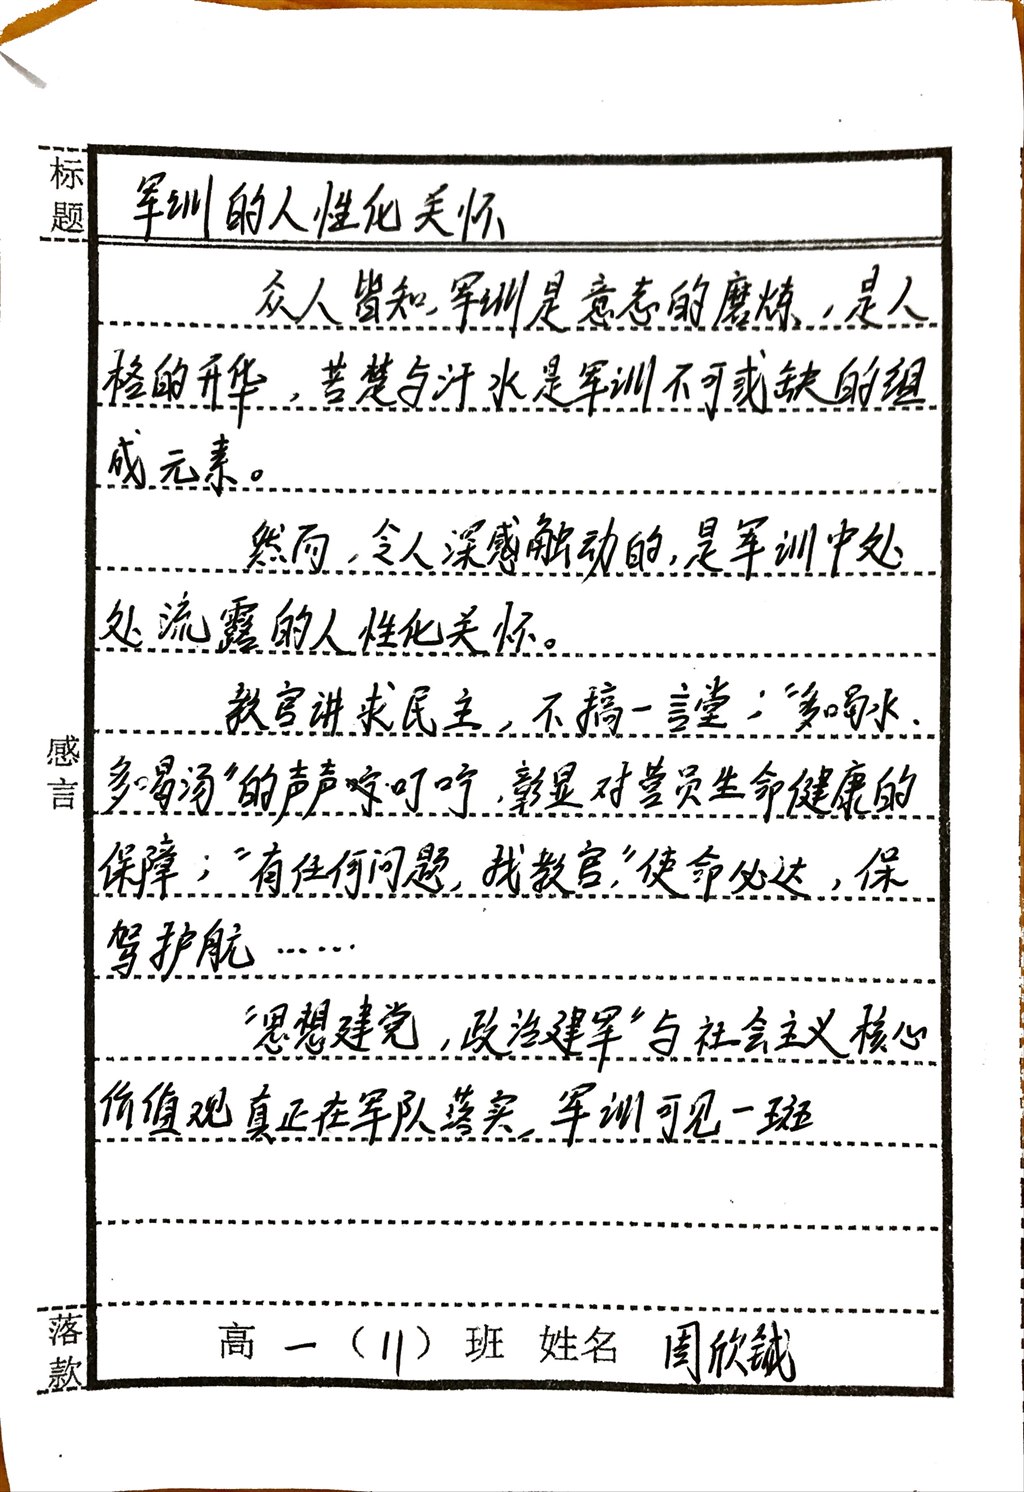 标题
军训的人性化关怀
众人皆知,军训是意志的磨炼,是人
格的升华,苦楚与汗水是军训不可或缺的组
成元素。
然而,令人深感触动的,是军训中处
处流露的人性化关怀。
感言
教官讲求民主,不搞一言堂;“多喝水、
多喝汤”的声声叮咛,彰显对营员生命健康的
保障;“有任何问题,找教官,”使命必达,保
驾护航……
“思想建党,政治建军”与社会主义核心
价值观真正在军队落实,军训可见一斑
落款
高一(11)班 姓名 周欣铖